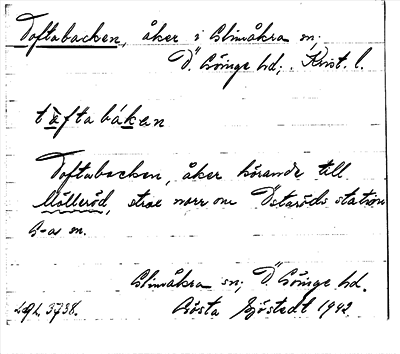 Toftabacken, åker i Glimåkra sn;
Ö. Göinge hd; Krist. l.
tàftabákan
Toftabacken, åker hörande till
Mölleröd, strax norr om Östaröds station
G-a sn.
Glimåkra sn; Ö. Göinge hd.
Lgl. 3738. Gösta Sjöstedt 1942